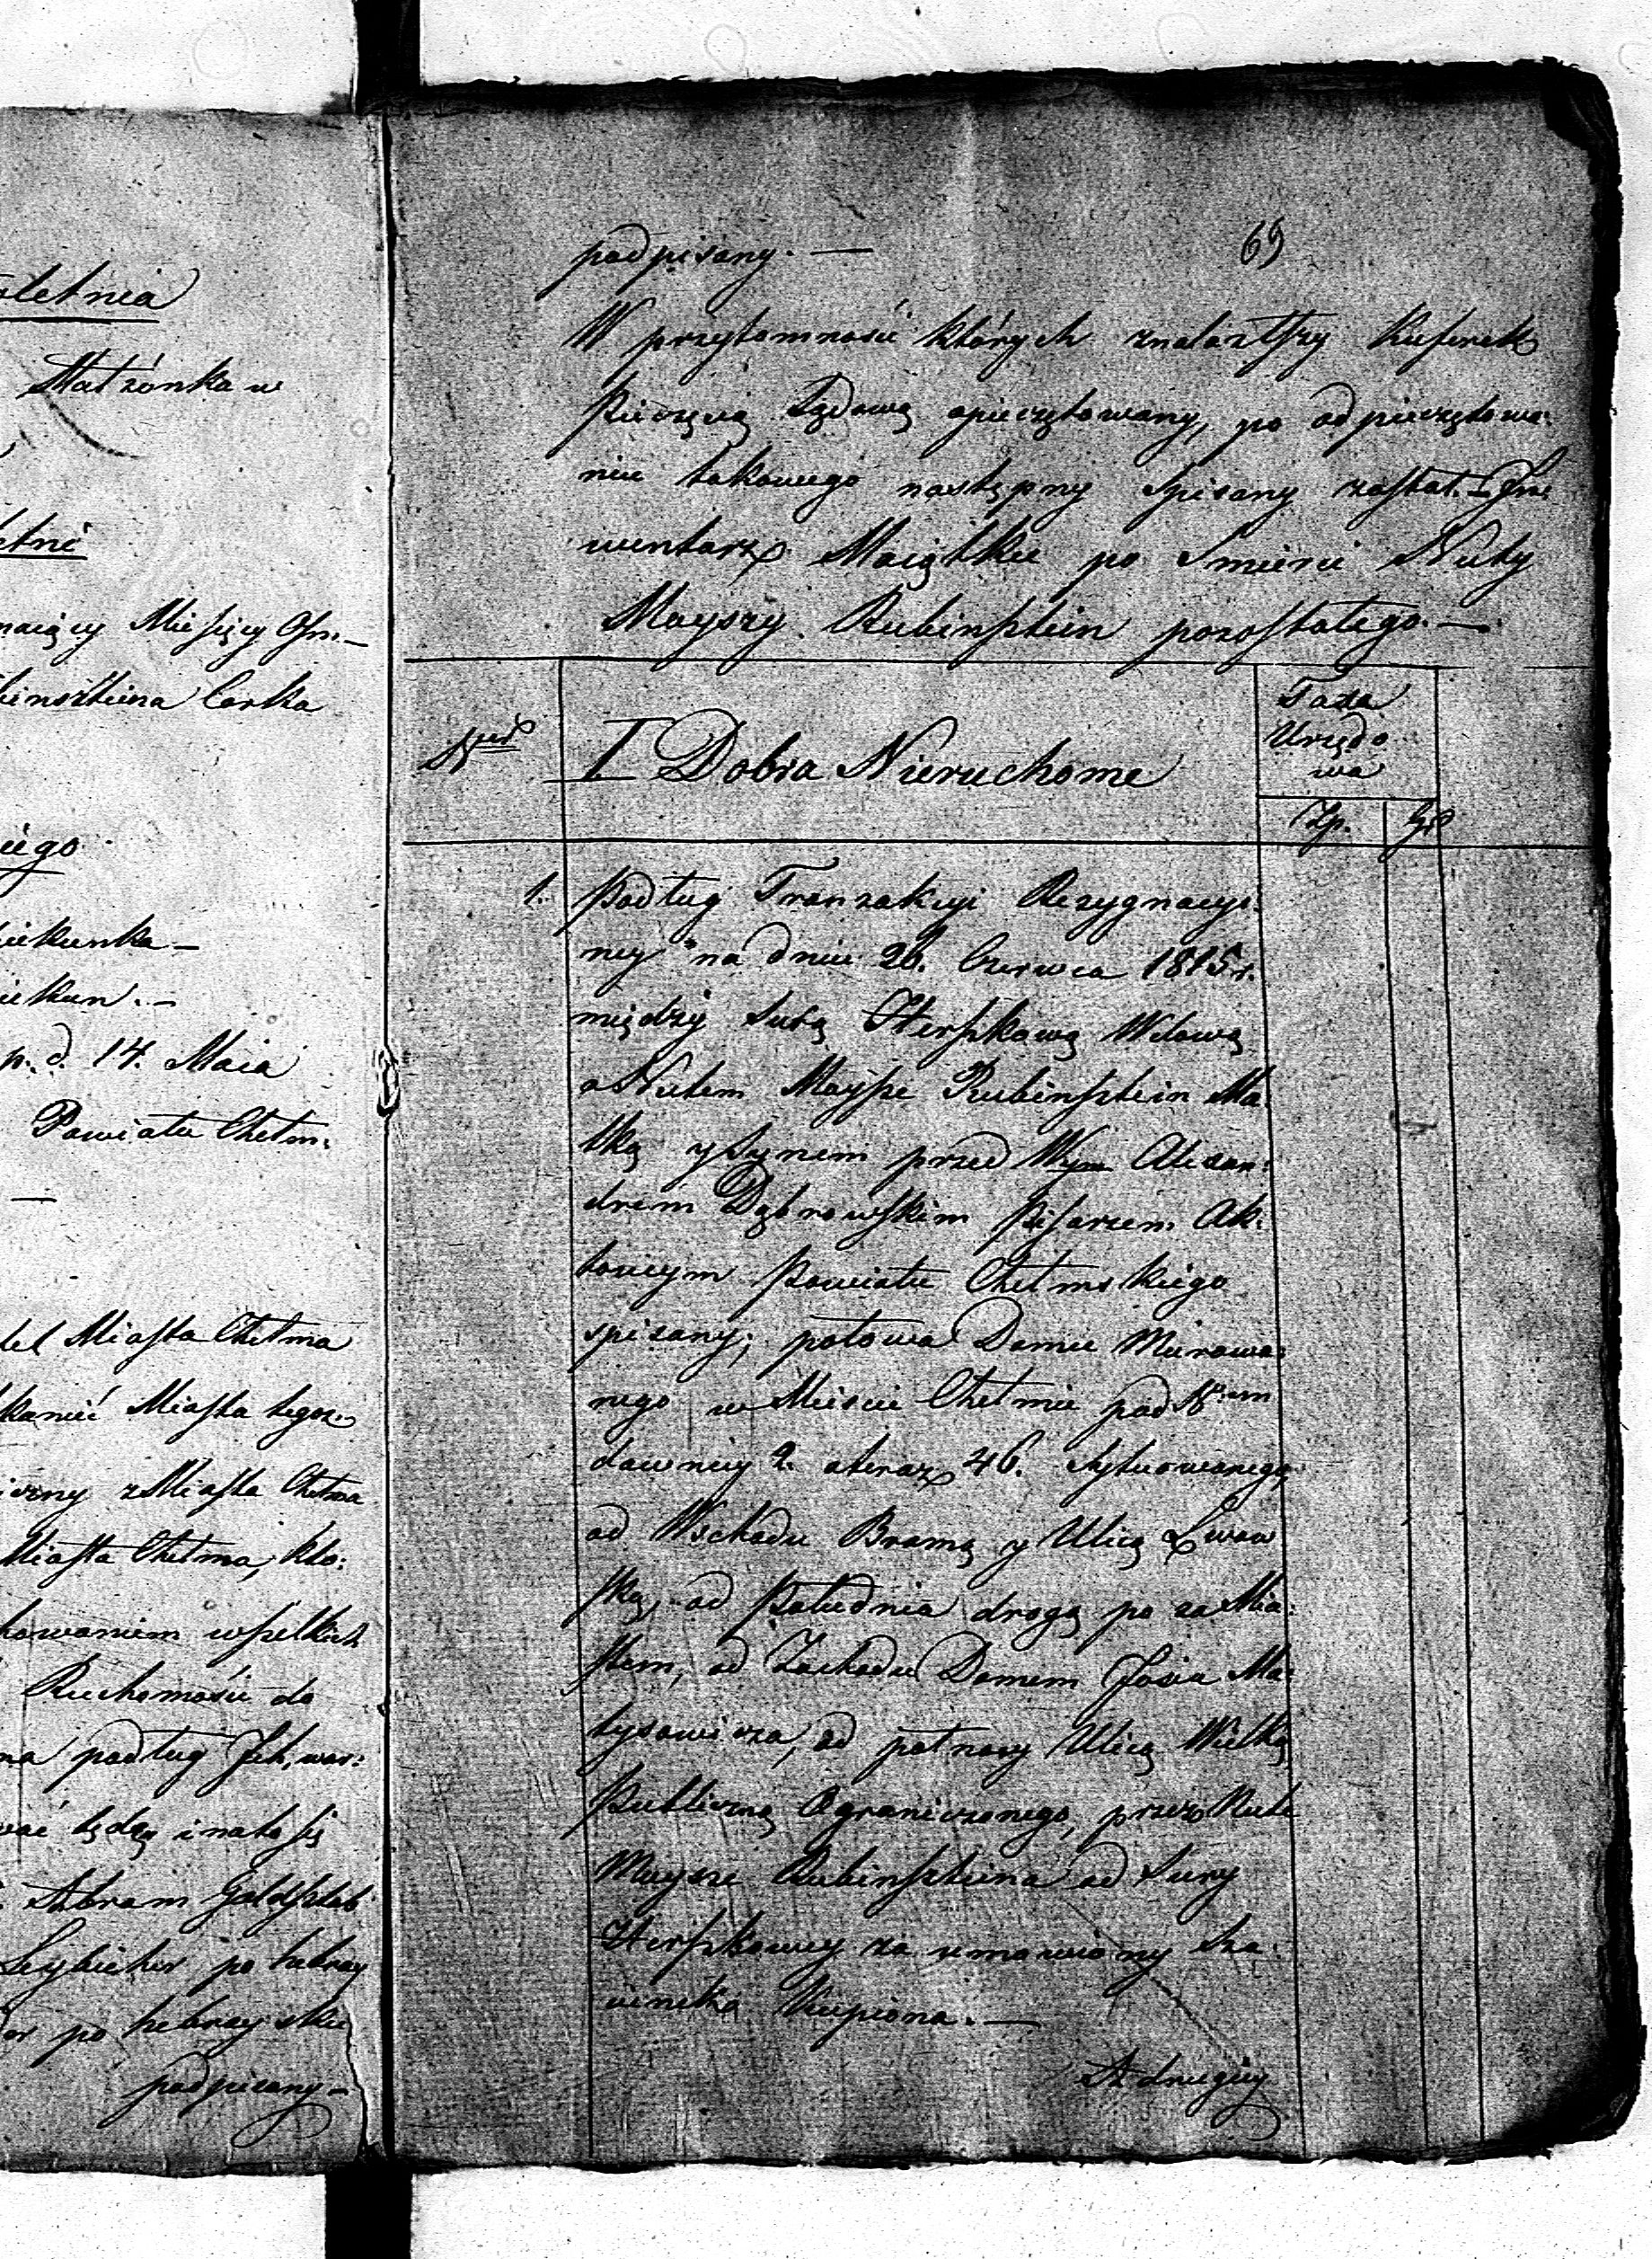 etnia
Małżonka w
etni
maiący Miesięcy Osm—
binszteina Corka
iego
iekunka—
iekun.—
p. d. 14. Maia
Powiatu Chełm:
—
tel Miasta Chełma
kanić Miasta tegoż
iczny z Miasta Chełma
Miasta Chełma, kto:
howaniem wszelkich
Ruchomości do
na podług Ich, war:
wać będą i na to się
Abram Goldsztab
po hebray
or po hebraysku
podpisany—
69
podpisany.—
W przytomności których znalazłszy Kuferek
Pieczęcią Sądową opieczętowany, po odpieczętowa:
niu takowego następny Spisany został.— In:
wentarz Maiątku po Smierci Nuty
Moyszy Rubinsztein pozostałego.—
Nrꝰ
I Dobra Nieruchome
Taxa
Urzędo
wa
Zp. | Gr
1. Podług Tranzakcyi Rezygnacyi:
ney na dniu 26. Czerwca 1815 r.
między Surą Herszkową Wdową
a Nutem Moysze Rubinsztein Ma:
tką y Synem przed Wym Alexan:
drem Dąbrowskim Pisarzem Ak:
towym Powiatu Chełmskiego
spisany; połowa Domu Murowa:
nego w Mieście Chełmie pod Nrem
dawniey 2. a teraz 46. sytuowanego,
od Wschodu Bramą y Ulicą Lwow
ską, od Południa drogą po za Mia:
stem, od Zachodu Domem Josia Ma:
tysowicza, od połnocy Ulicą Wielką
Publiczną Ograniczonego, przez Nute
Moysze Rubinszteina od Sury
Herszkowey za umowiony Sza:
cunek Kupiona.—
A drugiey